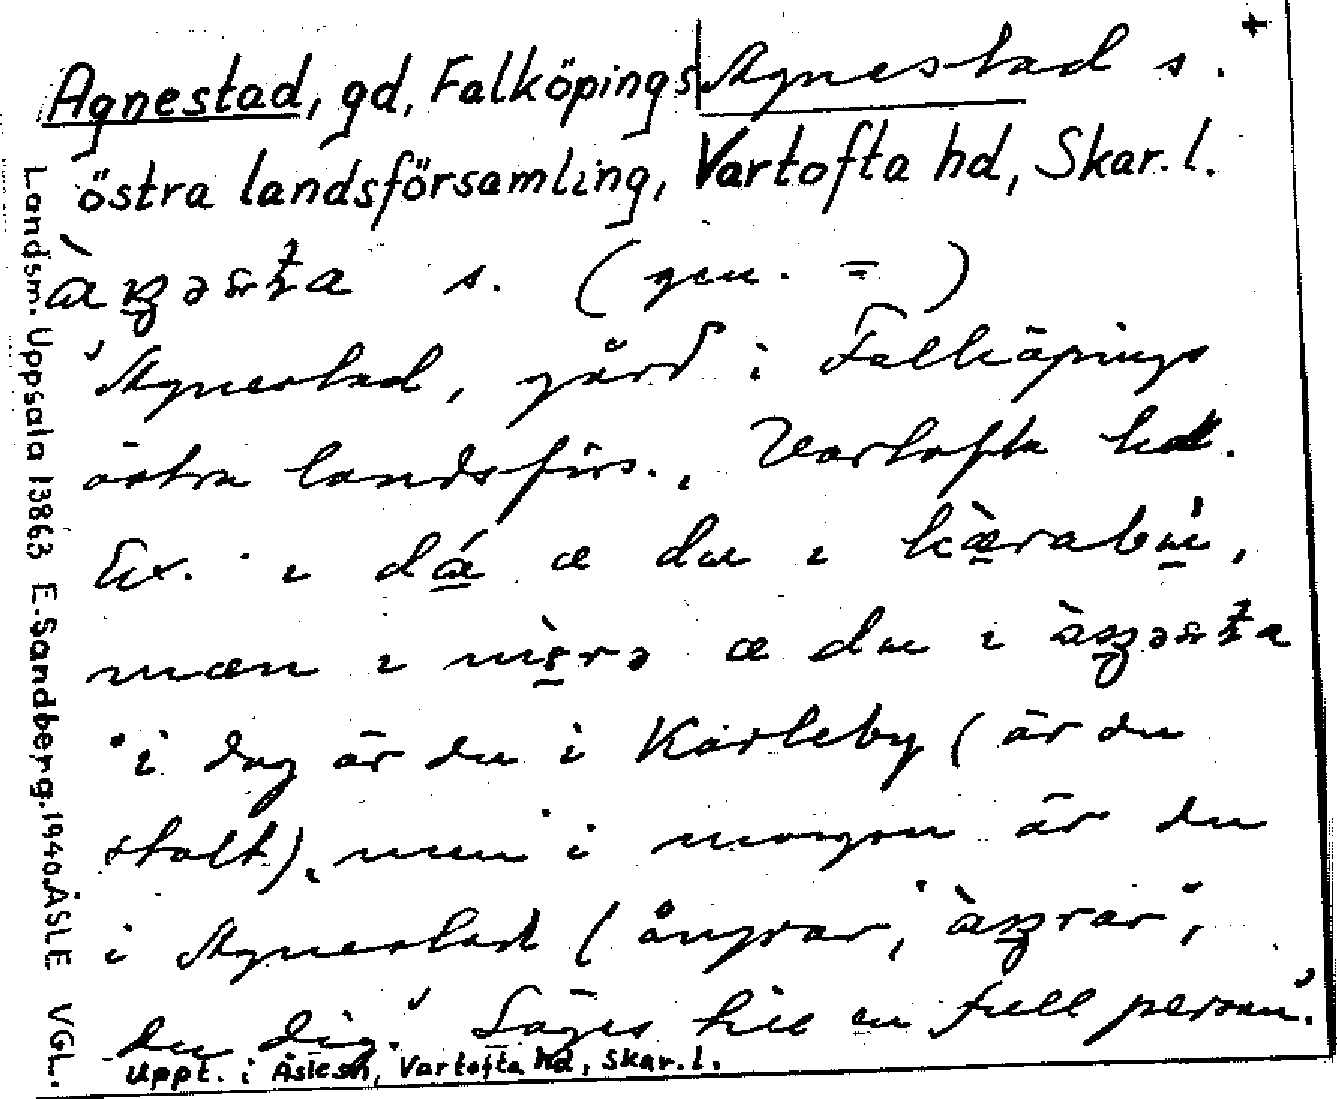 Agnestad, gd, Falköpings Agnestad s.
östra landsförsamling, Vartofta hd, Skar. l.
s. (gen. = )
"Agnestad, gård i Falköpings
östra landsförs., Vartofta hd.
Ex. ı dá æ du ı kæ̀rabý,
mæn ı mɷ̀rə æ du ı
"i dag är du i Karleby (är du
stolt), men i morgon är du
i Agnestad (ångrar,
du dig." Säges till en full person.
Uppt. i Åslesn, Vartofta hd, Skar. l.
Landsm. Uppsala 13863 E. Sandberg. 1940. ÅSLE VGL.